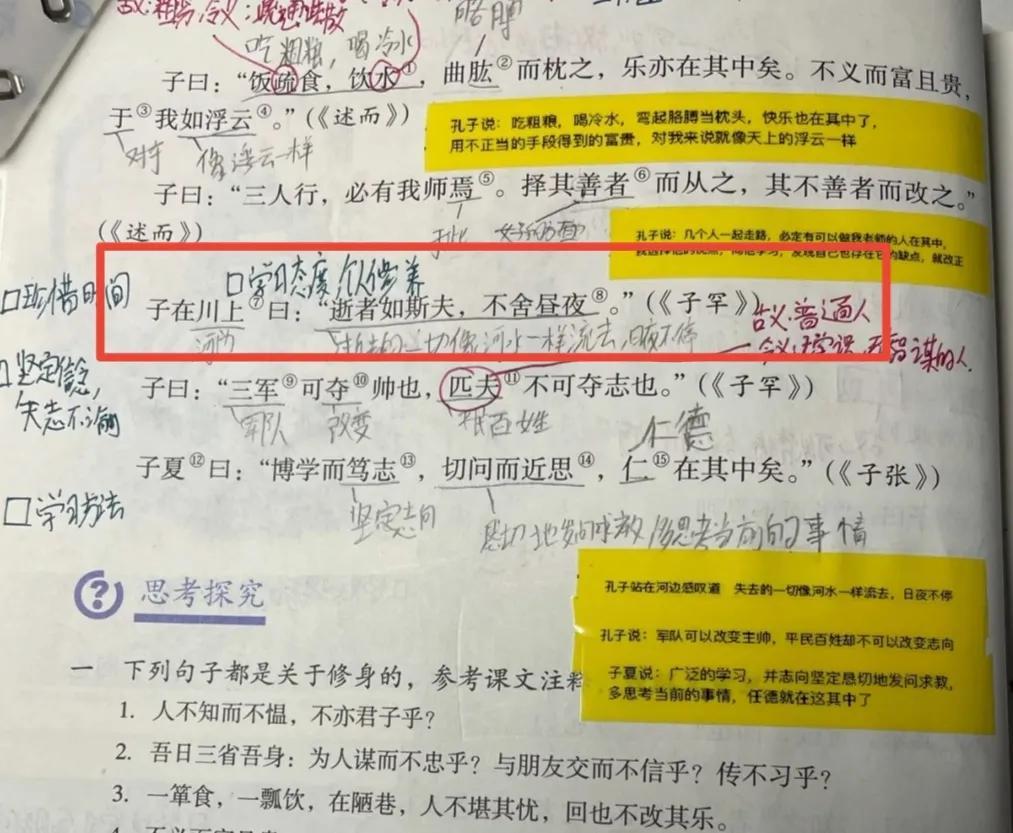 古义:粗粮,今义:疏通蔬散
吃粗粮,喝冷水
胳膊
子曰：“饭疏食，饮水①，曲肱②而枕之，乐亦在其中矣。不义而富且贵，
于③我如浮云④。”(《述而》)
对于
像浮云一样
孔子说：吃粗粮，喝冷水，弯起胳膊当枕头，快乐也在其中了，
用不正当的手段得到的富贵，对我来说就像天上的浮云一样
子曰：“三人行，必有我师焉⑤。择其善者⑥而从之，其不善者而改之。”
(《述而》)
于此
好的方面
孔子说：几个人一起走路，必定有可以做我老师的人在其中，
我选择他的优点，向他学习，发现自己也存在它的缺点，就改正
□珍惜时间
□学习态度,个人修养
子在川上⑦曰：“逝者如斯夫，不舍昼夜⑧。”(《子罕》)
河边
失去的一切像河水一样流去,日夜不停
古义:普通人
今义:无学识,无智谋的人.
□坚定信念,
矢志不渝
子曰：“三军⑨可夺⑩帅也，匹夫⑪不可夺志也。”(《子罕》)
军队
改变
平民百姓
仁德
子夏⑫曰：“博学而笃志⑬，切问而近思⑭，仁⑮在其中矣。”(《子张》)
□学习方法
坚定志向
恳切地发问求教
多思考当前的事情
孔子站在河边感叹道 失去的一切像河水一样流去，日夜不停
孔子说：军队可以改变主帅，平民百姓却不可以改变志向
子夏说：广泛的学习，并志向坚定恳切地发问求教，
多思考当前的事情，任德就在这其中了
? 思考探究
一 下列句子都是关于修身的，参考课文注释
1. 人不知而不愠，不亦君子乎？
2. 吾日三省吾身：为人谋而不忠乎？与朋友交而不信乎？传不习乎？
3. 一箪食，一瓢饮，在陋巷，人不堪其忧，回也不改其乐。